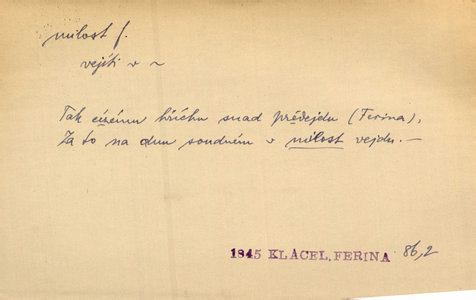 milost f.
vejíti v ~
Tak cizému hříchu snad předejdu (Ferina),
Za to na dnu soudném v milost vejdu. —
1845 KLÁCEL, FERINA 86,2